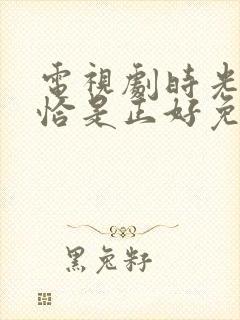 電視劇時光
恰是正好免
黑兔籽